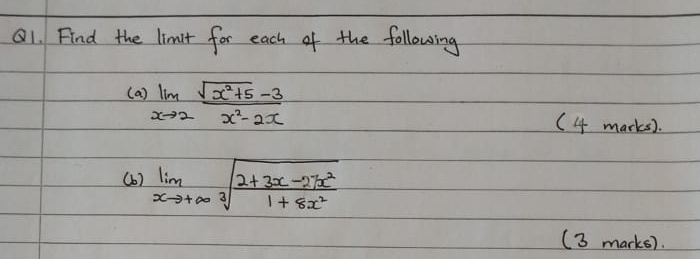 Q1. Find the limit for each of the following
(a) lim x→2 (√(x²+5) -3)/(x²-2x)
(4 marks).
(b) lim x→+∞ ∛((2+3x-27x²)/(1+8x²))
(3 marks).